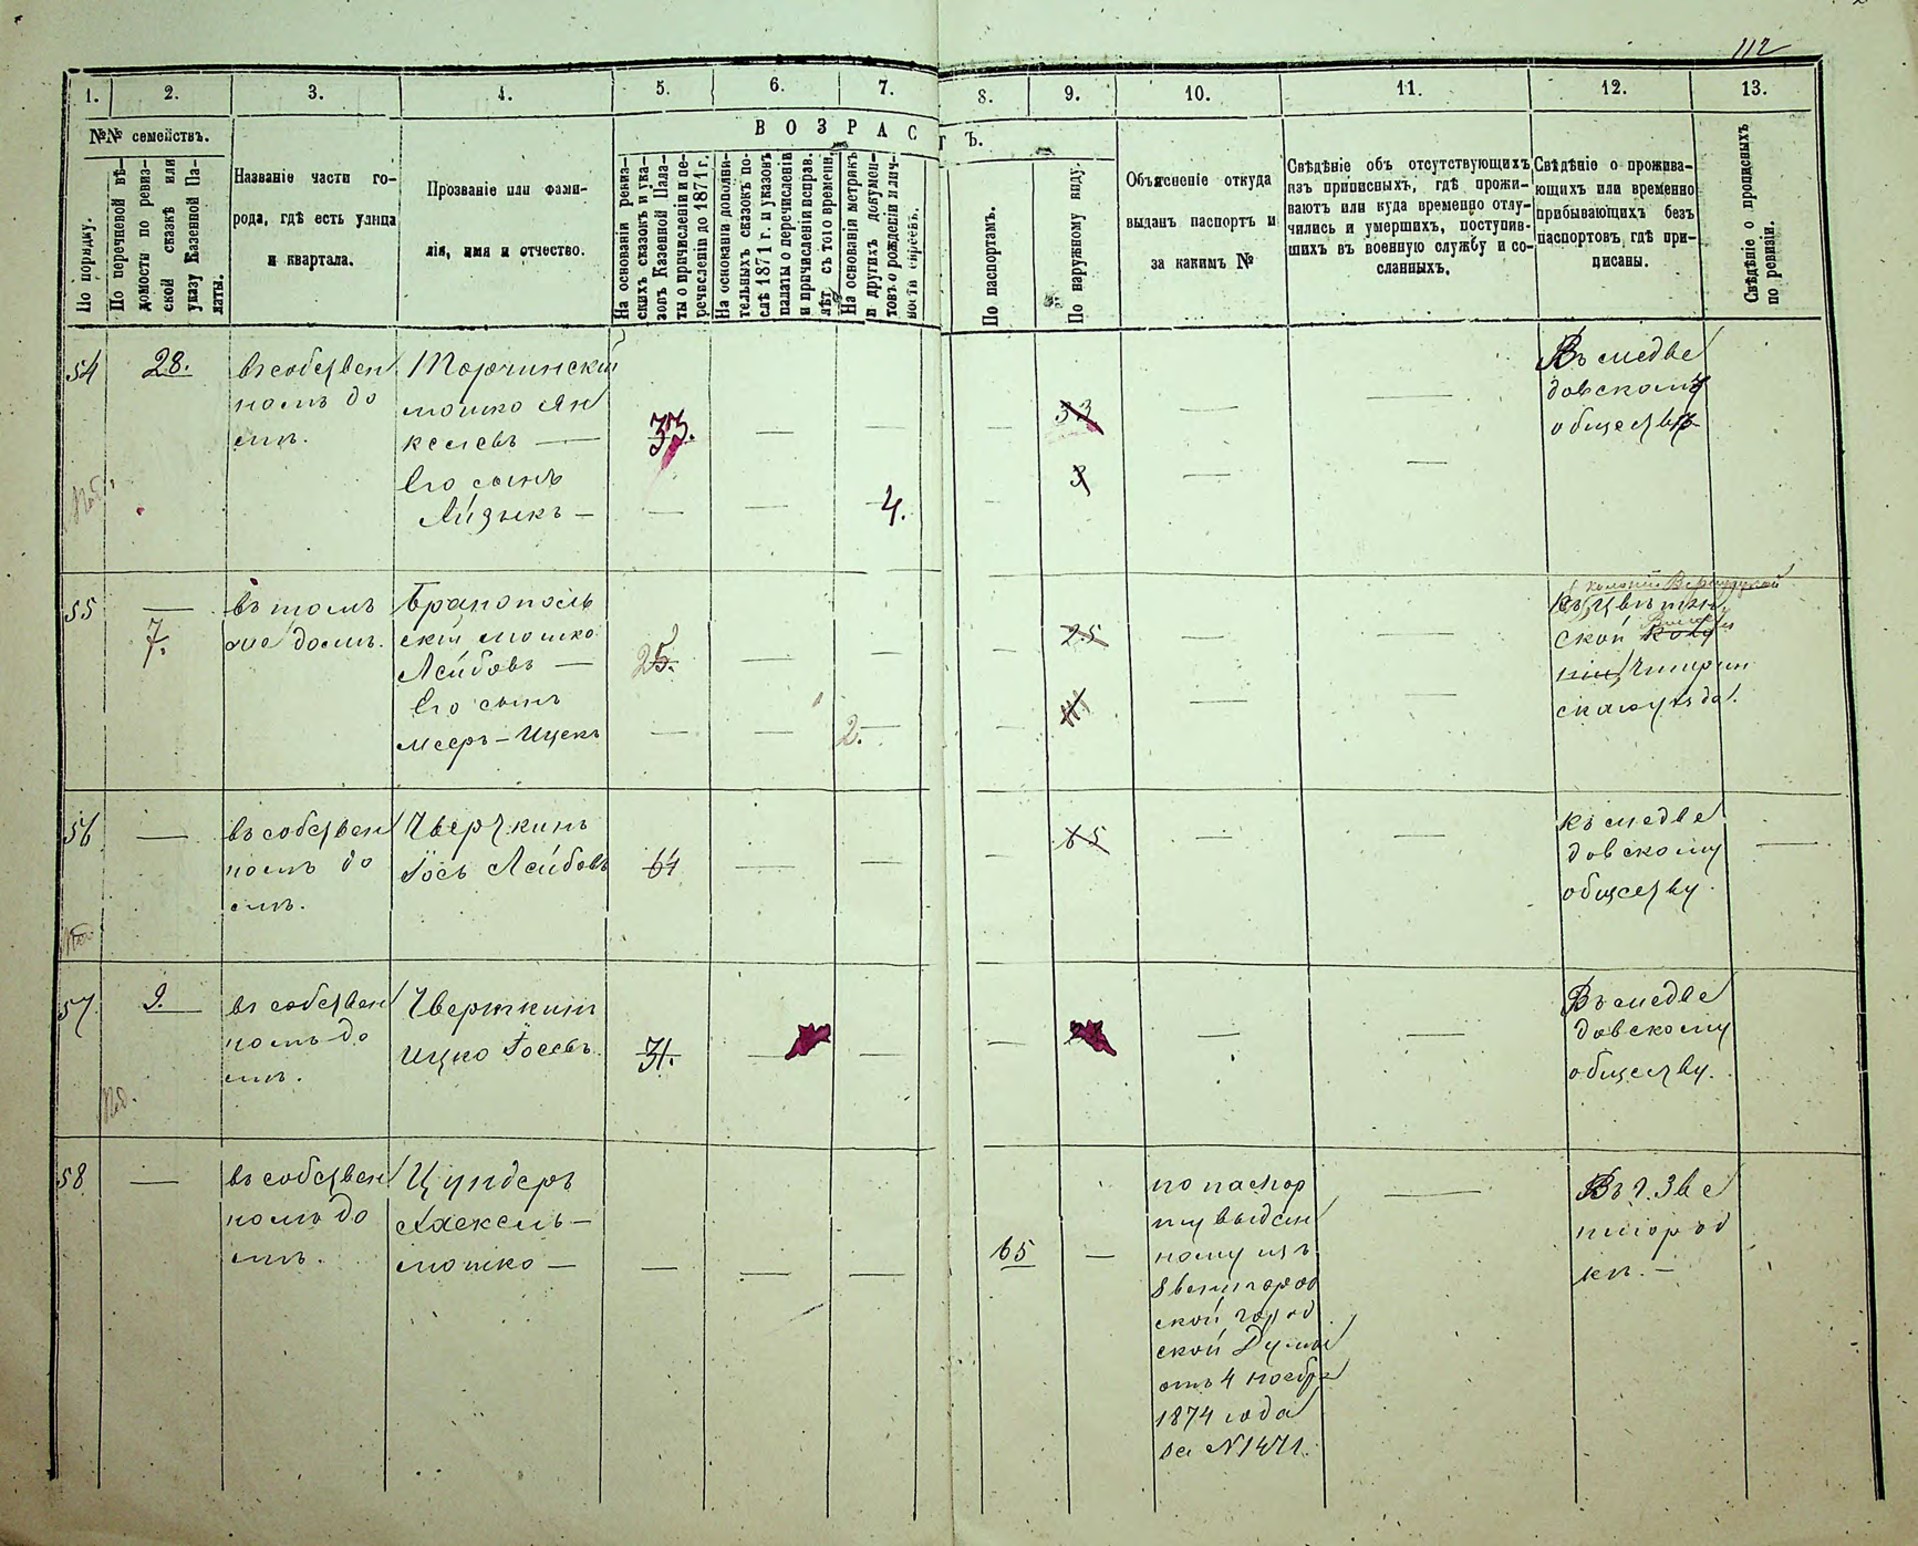 112
1. 2. 3. 4. 5. 6. 7. 8. 9. 10. 11. 12. 13.
№№ семействъ.
По порядку.
По перечневой вѣ-
домости по ревиз-
ской сказкѣ или
указу Казенной Па-
латы.
Названіе части го-
рода, гдѣ есть улица
и квартала.
Прозваніе или фами-
лія, имя и отчество.
ВОЗРАСТЪ.
На основаніи ревиз-
скихъ сказокъ и ука-
зовъ Казенной Пала-
ты о причисленіи и пе-
речисленіи до 1871 г.
На основаніи дополни-
тельныхъ сказокъ по-
слѣ 1871 г. и указовъ
палаты о перечисленіи
и причисленіи исправ.
лѣт. съ того времени.
На основаніи метрикъ
и другихъ докумен-
товъ о рожденіи и лич-
ности евреевъ.
По паспортамъ.
По наружному виду.
Объясненіе откуда
выданъ паспортъ и
за какимъ №
Свѣдѣніе объ отсутствующихъ
изъ приписныхъ, гдѣ прожи-
ваютъ или куда временно отлу-
чились и умершихъ, поступив-
шихъ въ военную службу и со-
сланныхъ.
Свѣдѣніе о прожива-
ющихъ или временно
прибывающихъ безъ
паспортовъ, гдѣ при-
писаны.
Свѣдѣніе о прописныхъ
по ревизіи.
54
28.
въ собствен
номъ до
мѣ.
Торчинскій
мошко Ян
келевъ —
33.
—
—
—
33
—
—
Въ медве
довскому
обществѣ
Его сынъ
Айзыкъ —
—
—
4.
—
3
—
—
55
—
7.
въ томъ
же домѣ.
Бранополь
скій мошко
Лейбовъ —
25.
—
—
—
25
—
—
Его сынъ
меер – Ицекъ
—
—
2.
—
—
—
скои
Чигирин
скаго уѣзда.
56
—
въ собствен
номъ до
мѣ.
Чверткинъ
Іось Лейбовъ
64
—
—
—
65
—
—
къ медве
довскому
обществу.
—
57
9.
въ собствен
номъ до
мѣ.
Чверткинъ
Ицко Іосевъ.
31.
—
—
—
—
—
Въ медве
довскому
обществу.
58
—
въ собствен
номъ до
мѣ.
Цундеръ
мошко —
—
—
—
65
—
по паспор
ту выдан
ному изъ
Звенигород
ской город
ской Думы
отъ 4 ноебря
1874 года
за N 1471.
—
Въ г. Зве
нигород
кѣ. —